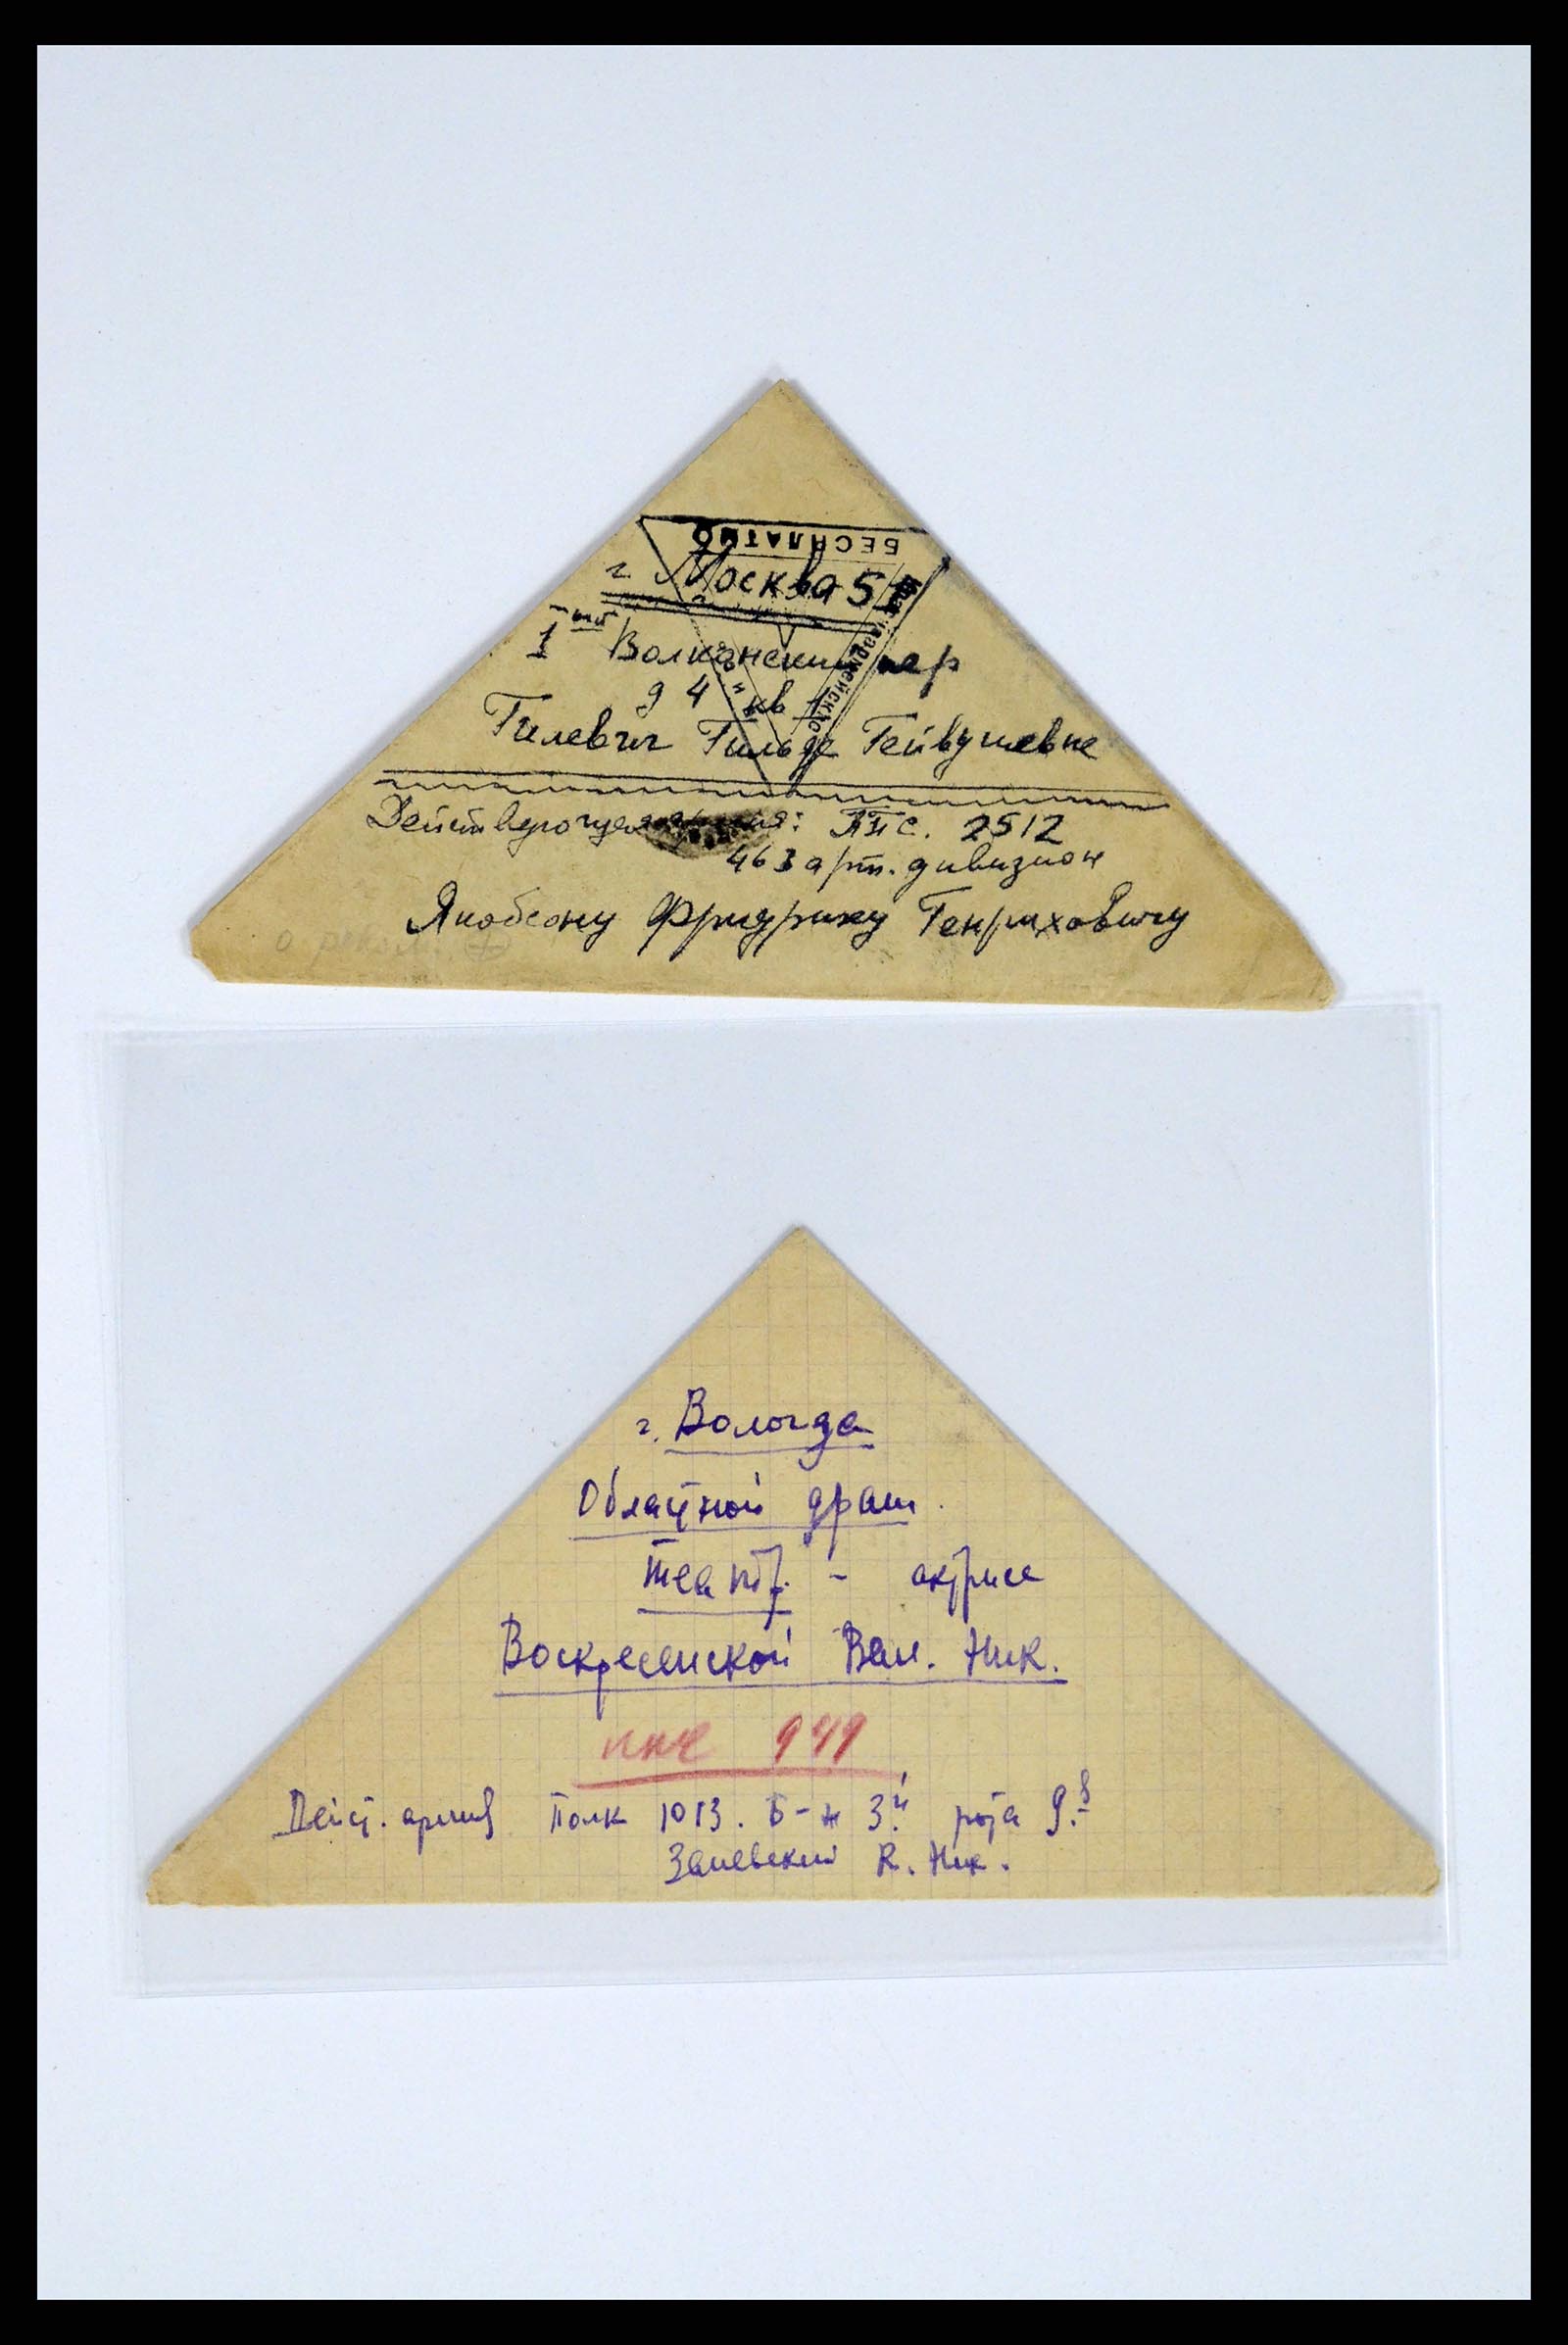 БЕСПЛАТНО
г. Москва 51
1ый Волконский пер
д 4 кв 1
Гилевич Гильде Гейвушевне
Действующая армия: ППС. 2512
463 арт. дивизион
Якобсону Фридриху Генриховичу
г. Вологда
Областной драм.
театр. - актрисе
Воскресенской Вал. Ник.
ппс 949
Дейст. армия Полк 1013. Б-н 3й рота 9.я
Заневский К. Ник.